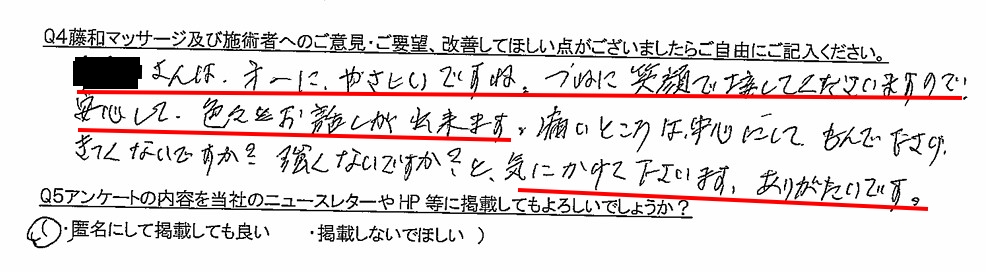 Q4藤和マッサージ及び施術者へのご意見・ご要望、改善してほしい点がございましたらご自由にご記入ください。
さんは、オーに、やさしいですね。つねに笑顔で接してくださいますので
安心して、色々とお話しが出来ます。痛いところは、中心にして、もんで下さり、
きつくないですか?強くないですか?と、気にかけて下さいます、ありがたいです。
Q5アンケートの内容を当社のニュースレターやHP等に掲載してもよろしいでしょうか?
・匿名にして掲載しても良い ・掲載しないでほしい )